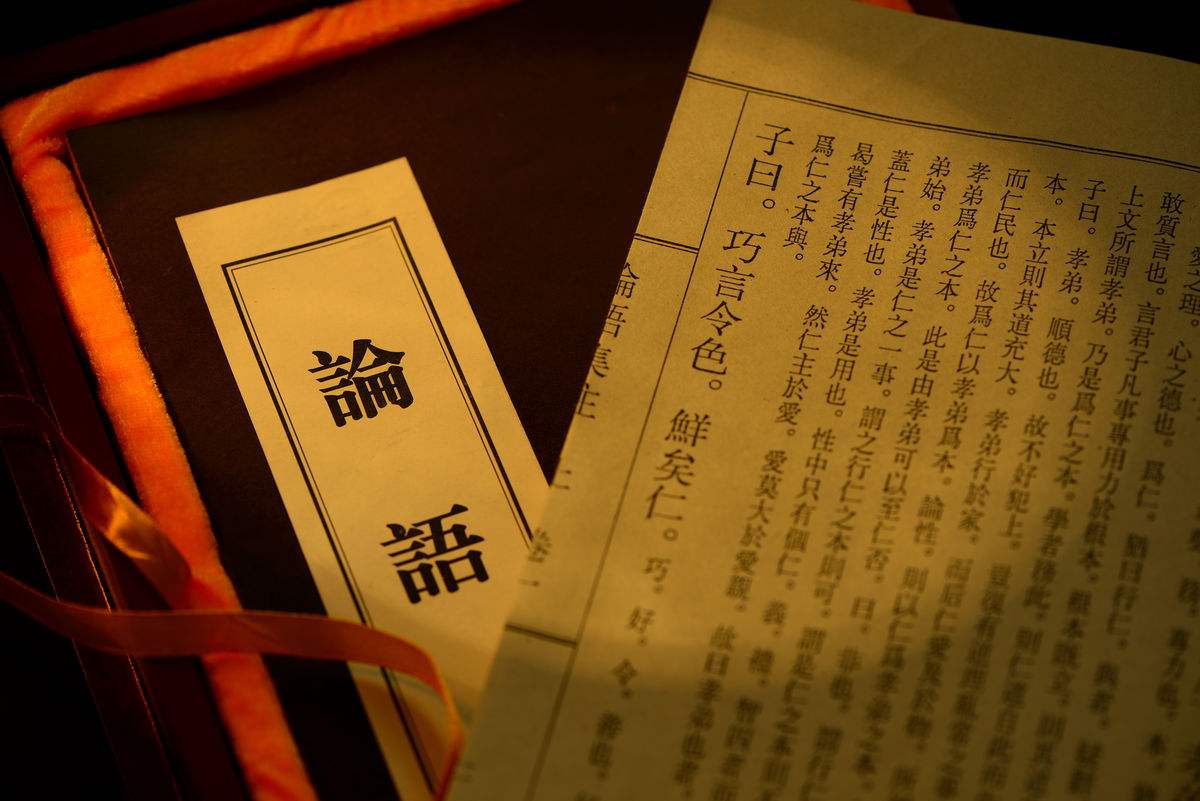 論語
愛之理。心之德也。爲仁。猶曰行仁。與者。
敢質言也。言君子凡事專用力於根本。根本既立。則其道
上文所謂孝弟。乃是爲仁之本。學者務此。則仁道自此而
子曰。孝弟。順德也。故不好犯上。豈復有逆理亂常之事
本。本立則其道充大。孝弟行於家。而后仁愛及於物。
而仁民也。故爲仁以孝弟爲本。論性。則以仁爲孝弟之本。
孝弟爲仁之本。此是由孝弟可以至仁否。曰。非也。謂行仁
弟始。孝弟是仁之一事。謂之行仁之本則可。謂是仁之本則
蓋仁是性也。孝弟是用也。性中只有個仁。義。禮。智四者而
曷嘗有孝弟來。然仁主於愛。愛莫大於愛親。故曰孝弟也者。
爲仁之本與。
子曰。巧言令色。鮮矣仁。巧。好。令。善也。
論語集注 卷一